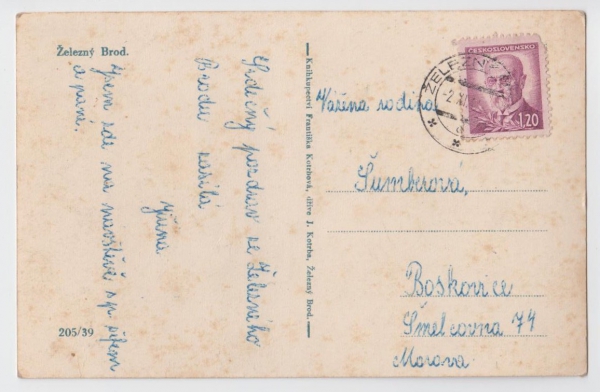 Železný Brod.
Srdečný pozdrav ze Železného
Brodu zasílá
Jiřina
Jsem zde na navštěvě s p.
a paní.
205/39
Knihkupectví Františka Kotrbová, dříve J. Kotrba, Železný Brod.
ČESKOSLOVENSKO
1.20
ŽELEZNÝ
Vážena rodina
Šumberová,
Boskovice
Šmelcovna 74
Morava